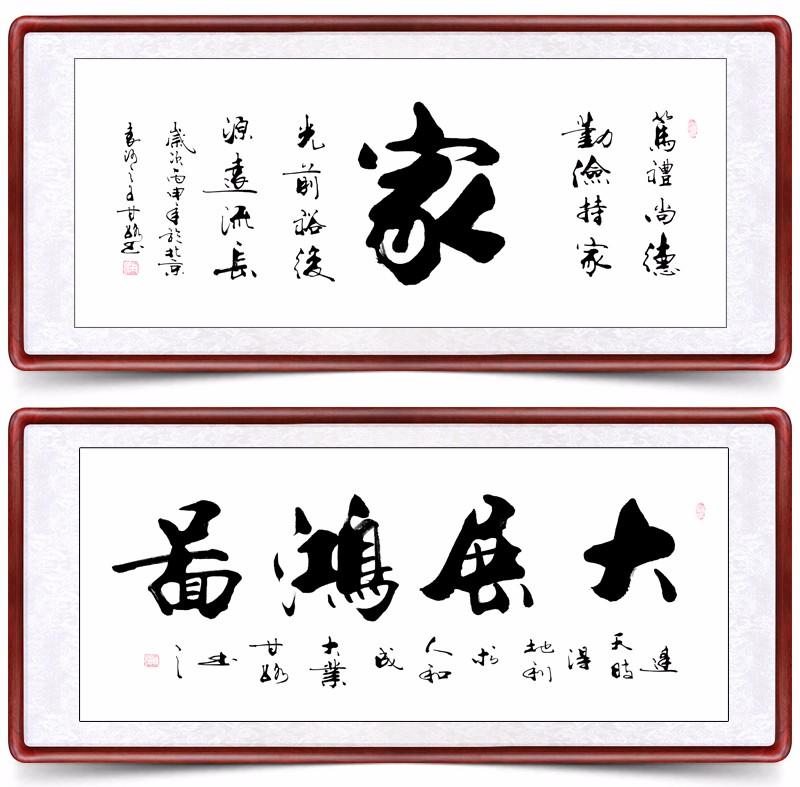 篤禮尚德
勤儉持家
家
光前裕後
源遠流長
歲次丙申年於北京
甘路书
大展鴻圖
逢天時得地利於人和成大業甘路书之